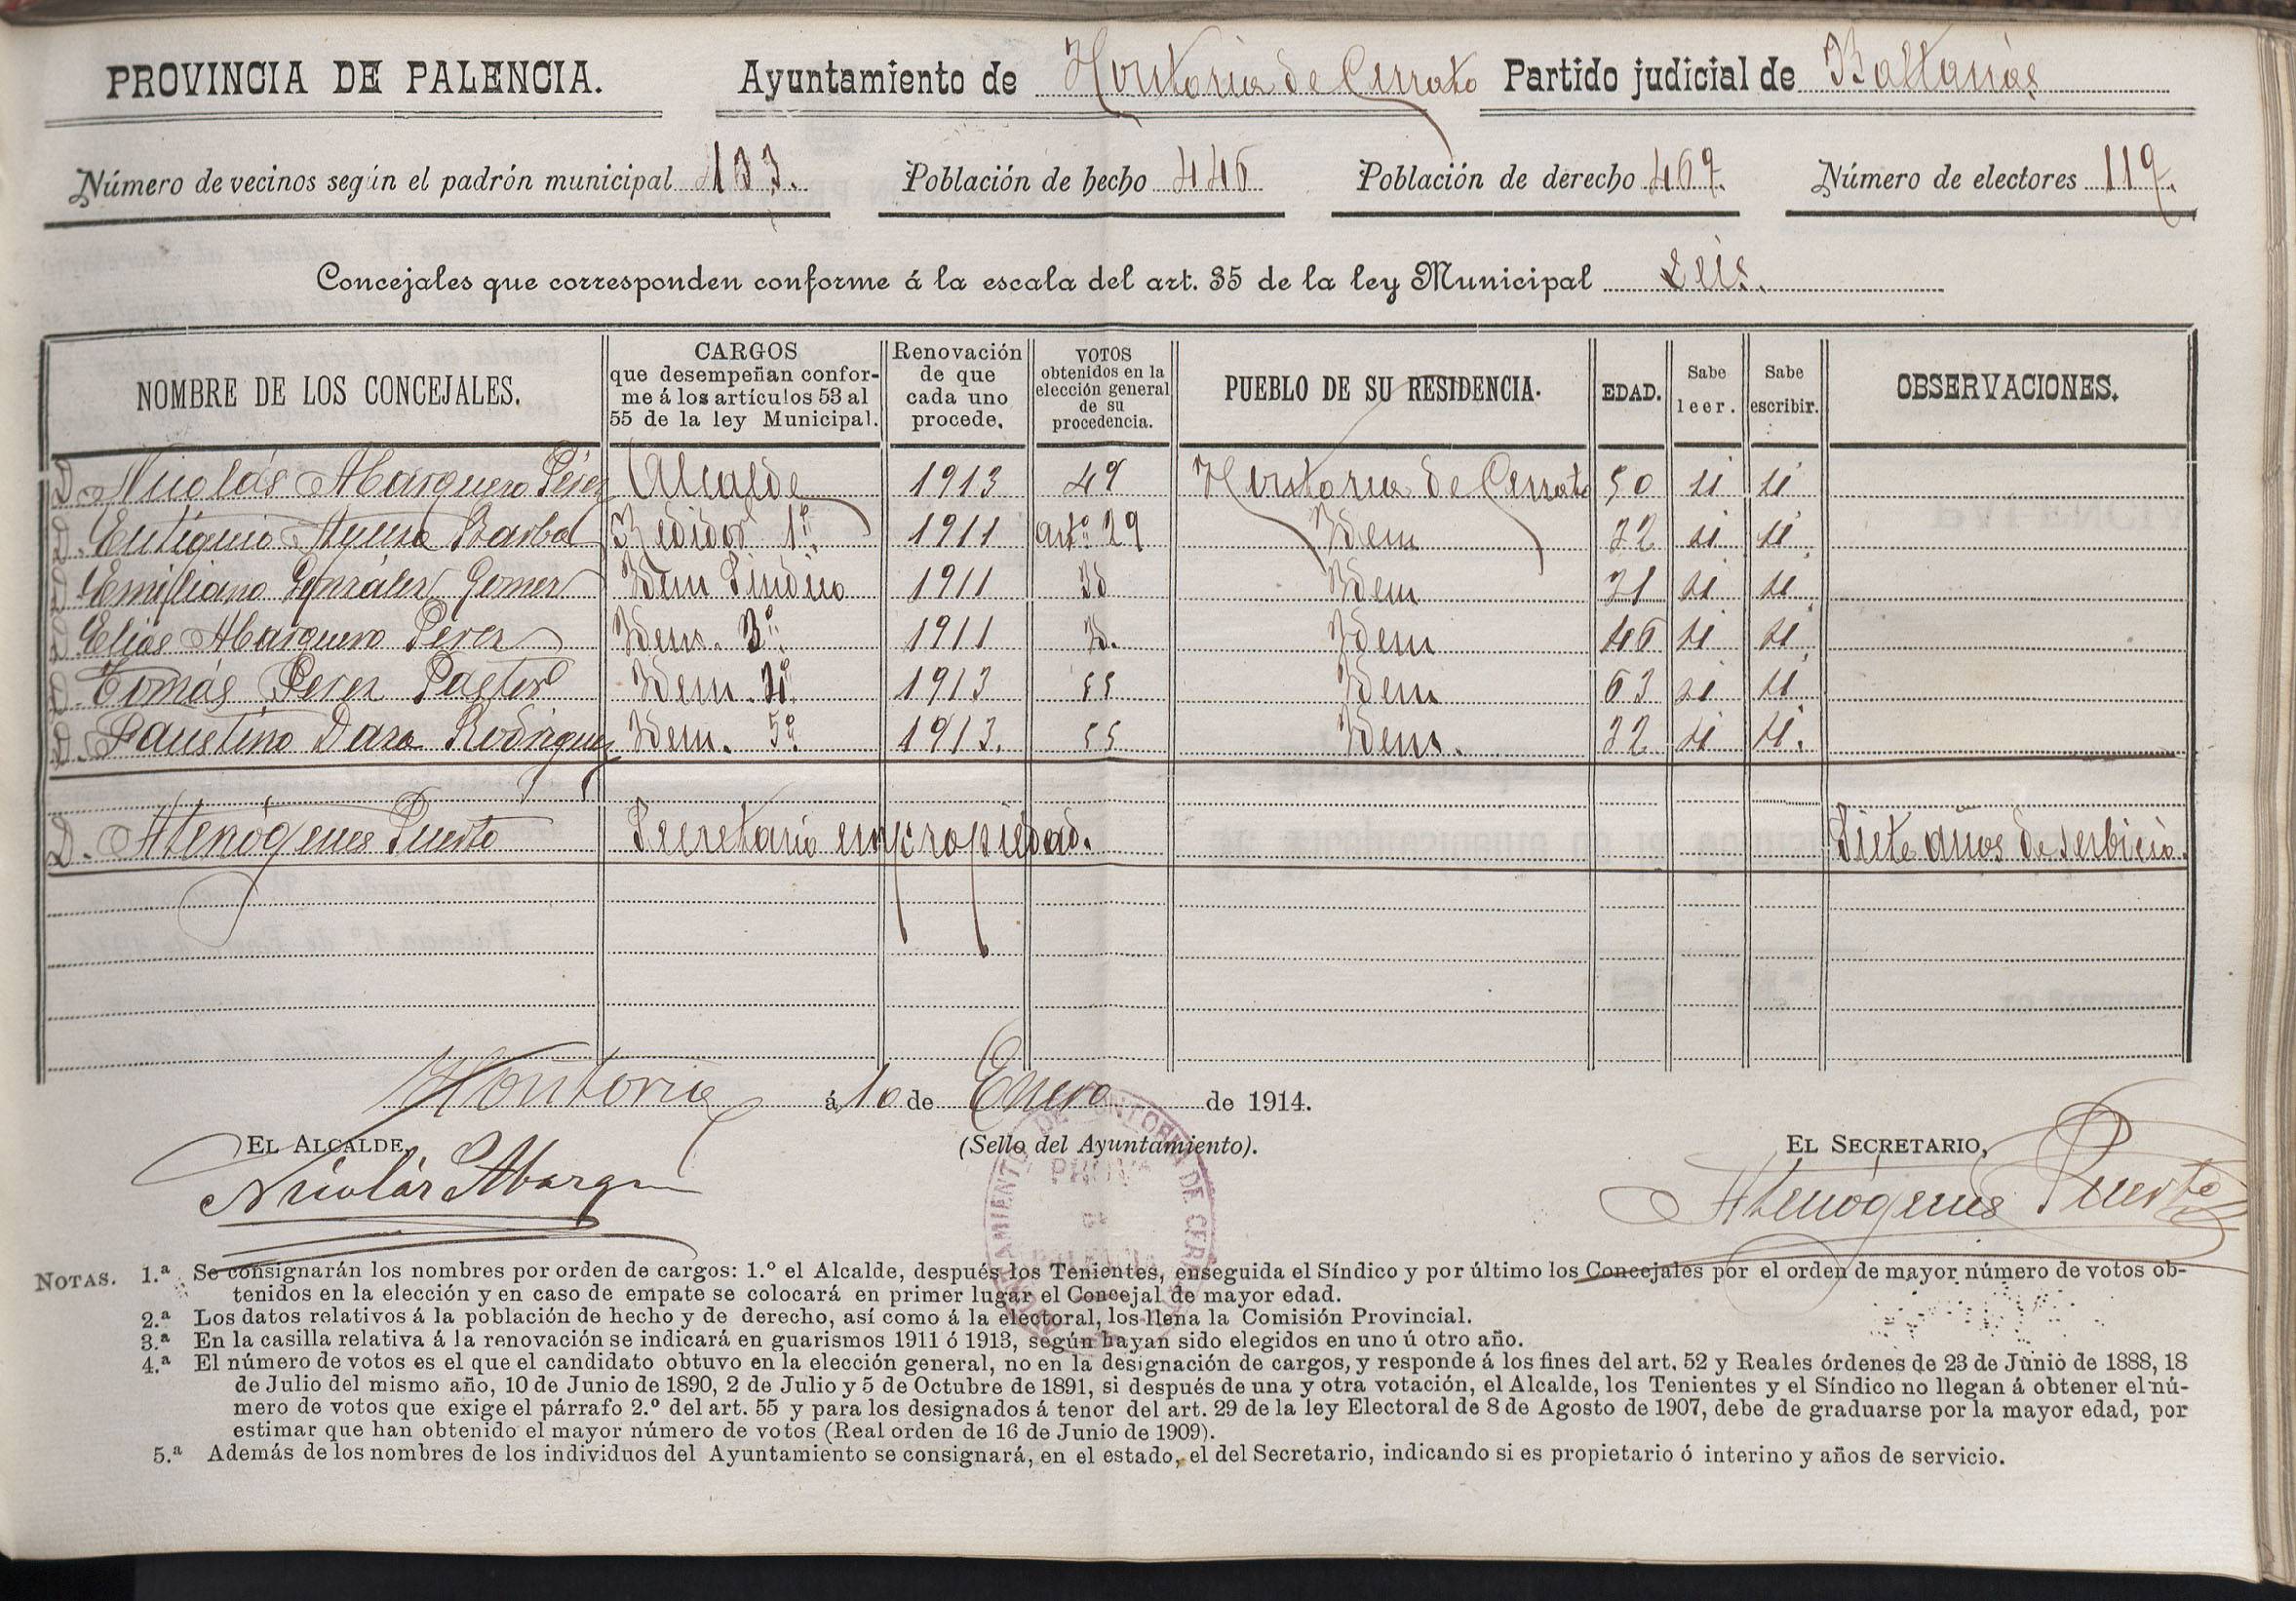 PROVINCIA DE PALENCIA. Ayuntamiento de Hontoria de Cerrato Partido judicial de Baltanás
Número de vecinos según el padrón municipal 133. Población de hecho 446 Población de derecho 469. Número de electores 119.
Concejales que corresponden conforme á la escala del art. 35 de la ley Municipal Seis.
NOMBRE DE LOS CONCEJALES. CARGOS que desempeñan conforme á los artículos 53 al 55 de la ley Municipal. Renovación de que cada uno procede. VOTOS obtenidos en la elección general de su procedencia. PUEBLO DE SU RESIDENCIA. EDAD. Sabe leer. Sabe escribir. OBSERVACIONES.
D. Nicolás Abarquero Pérez Alcalde 1913 49 Hontoria de Cerrato 50 si si
D. Eutiquio Barba Redidor 1º. 1911 artº 29 Idem 32 si si
D. Emiliano González Gomez Idem Sindico 1911 Id Idem 31 si si
D. Elías Abarquero Perez Idem. 3º. 1911 Id. Idem 46 si si
D. Tomás Perez Pastor Idem 4º 1913 55 Idem 63 si si
D. Faustino Daza Rodriguez Idem. 5º. 1913. 55 Idem. 32 si si.
D. Atenógenes Puerto Secretario en propiedad. Siete años de serbicio.
Hontoria á 10 de Enero de 1914.
EL ALCALDE, (Sello del Ayuntamiento). EL SECRETARIO,
Nicolás Abarqu Atenógenes Puerto
AYUNTAMIENTO DE HONTORIA DE CERRATO
PROVA
PALENCIA
NOTAS. 1.ª Se consignarán los nombres por orden de cargos: 1.º el Alcalde, después los Tenientes, enseguida el Síndico y por último los Concejales por el orden de mayor número de votos ob-
tenidos en la elección y en caso de empate se colocará en primer lugar el Concejal de mayor edad.
2.ª Los datos relativos á la población de hecho y de derecho, así como á la electoral, los llena la Comisión Provincial.
3.ª En la casilla relativa á la renovación se indicará en guarismos 1911 ó 1913, según hayan sido elegidos en uno ú otro año.
4.ª El número de votos es el que el candidato obtuvo en la elección general, no en la designación de cargos, y responde á los fines del art. 52 y Reales órdenes de 23 de Junio de 1888, 18
de Julio del mismo año, 10 de Junio de 1890, 2 de Julio y 5 de Octubre de 1891, si después de una y otra votación, el Alcalde, los Tenientes y el Síndico no llegan á obtener el nú-
mero de votos que exige el párrafo 2.º del art. 55 y para los designados á tenor del art. 29 de la ley Electoral de 8 de Agosto de 1907, debe de graduarse por la mayor edad, por
estimar que han obtenido el mayor número de votos (Real orden de 16 de Junio de 1909).
5.ª Además de los nombres de los individuos del Ayuntamiento se consignará, en el estado, el del Secretario, indicando si es propietario ó interino y años de servicio.